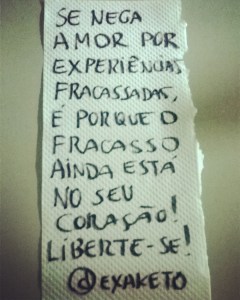 SE NEGA
AMOR POR
EXPERIÊNCIAS
FRACASSADAS,
É PORQUE O
FRACASSO
AINDA ESTÁ
NO SEU
CORAÇÃO!
LIBERTE-SE!
@EXAKETO